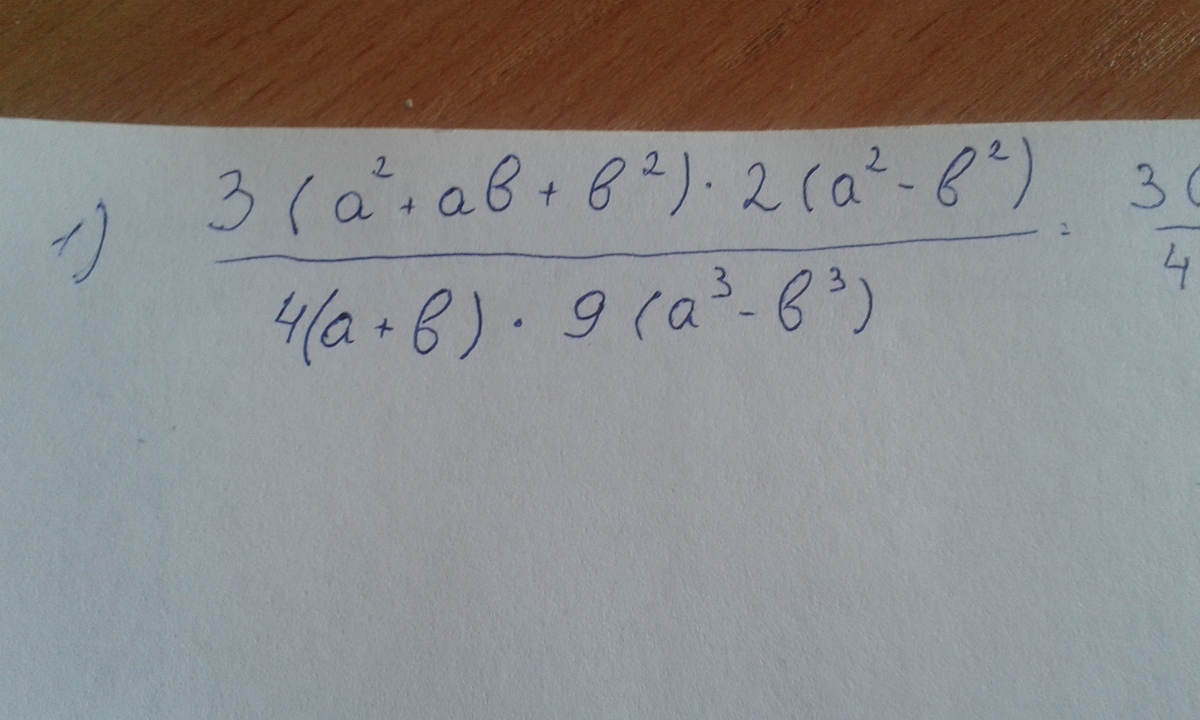 1) 3(a² + aв + в²) · 2(a² - в²) = 3(
4(a + в) · 9(a³ - в³) 4